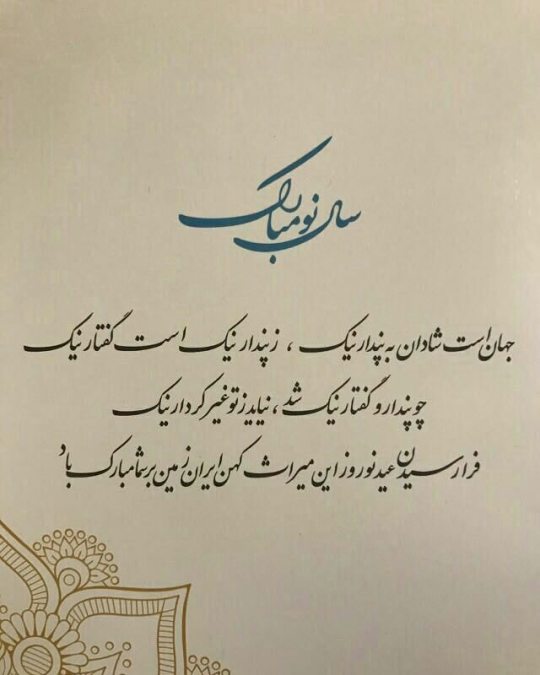 سال نو مبارک
جهان است شادان به پندار نیک ، ز پندار نیک است گفتار نیک
چو پندار و گفتار نیک شد ، نیاید ز تو غیر کردار نیک
فرا رسیدن عید نوروز این میراث کهن ایران زمین بر شما مبارک باد